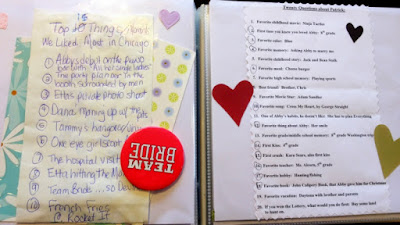 Top 10 Things
We Liked Most in Chicago
① Abby's debut on the piano
the party planner in the
booth surrounded by men
③ Etta's private photo shoot
④ Dana mixing up w/
⑤ Tammy's hangover
⑥ One eye girl
⑦ The hospital visit
⑧ Etta hitting the
⑨ Team Bride... so
⑩ French Fries
@ Rocket It
TEAM
BRIDE
Twenty Questions about Patrick:
1. Favorite childhood movie: Ninja Turtles
2. First time you knew you loved Abby: 8th grade
3. Favorite color: Blue
4. Favorite memory: Asking Abby to marry me
5. Favorite childhood story: Jack and Bean Stalk
6. Favorite meal: Cheese burger
7. Favorite high school memory: Playing sports
8. Best friend: Brother, Chris
9. Favorite Movie Star: Adam Sandler
10. Favorite song: Cross My Heart, by George Straight
11. One of Abby's habits, he doesn't like: She has to plan Everything
12. Favorite thing about Abby: Her smile
13. Favorite grade/middle school memory: 8th grade Washington trip
14. First Kiss: 4th grade
15. First crush: Kara Sears, also first kiss
16. Favorite teacher: Ms. Altman, 5th grade
17. Favorite hobby: Hunting/fishing
18. Favorite book: John Calipary Book, that Abby gave him for Christmas
19. Favorite vacation: Daytona with brother and parents
20. If you won the Lottery, what would you do first: Buy some land
to hunt on.